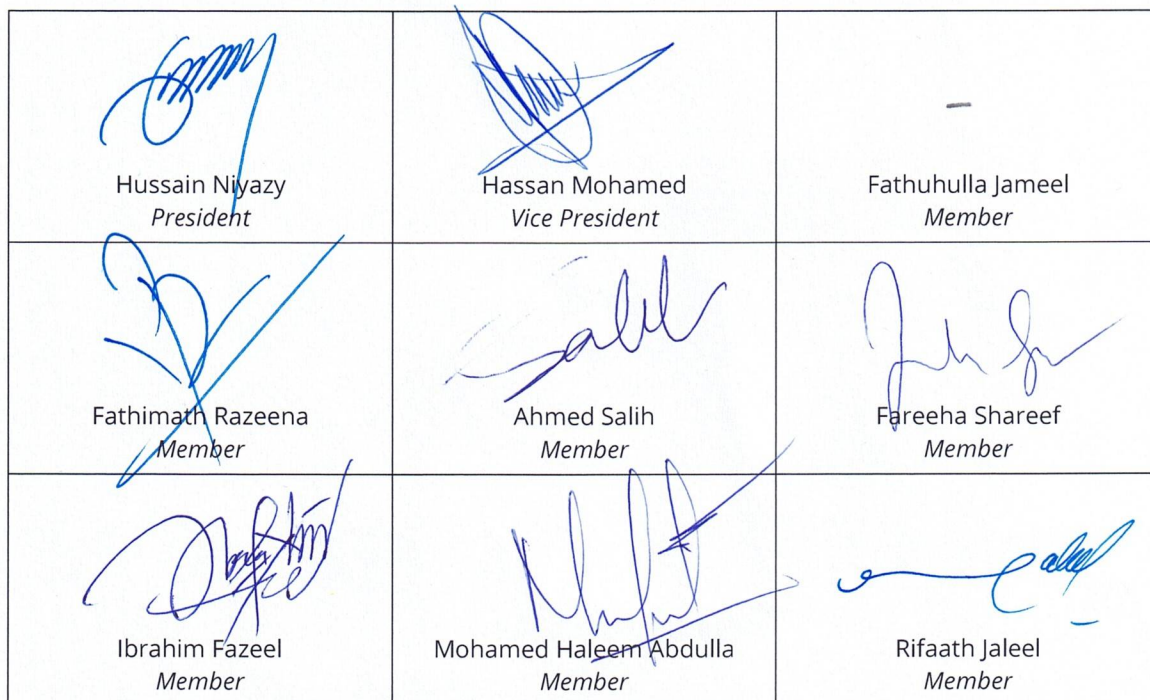 -
Hussain Niyazy
President
Hassan Mohamed
Vice President
Fathuhulla Jameel
Member
Salih
Fathimath Razeena
Member
Ahmed Salih
Member
Fareeha Shareef
Member
Ibrahim Fazeel
Member
Mohamed Haleem Abdulla
Member
Rifaath Jaleel
Member